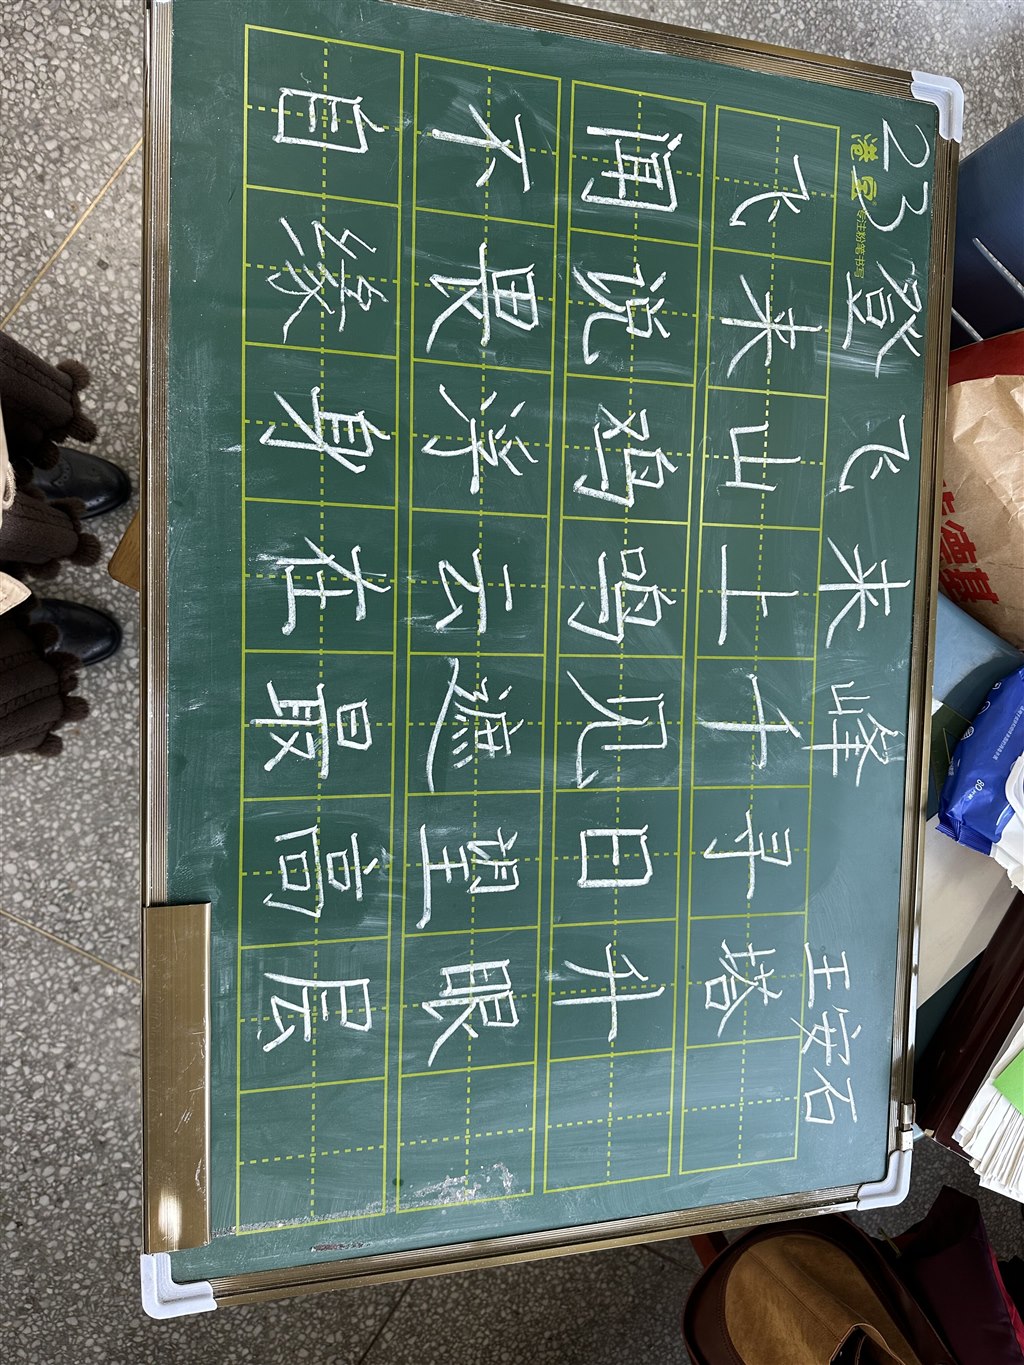 23 登飞来峰 王安石
港宝 专注粉笔书写
飞来山上千寻塔
闻说鸡鸣见日升
不畏浮云遮望眼
自缘身在最高层
德基